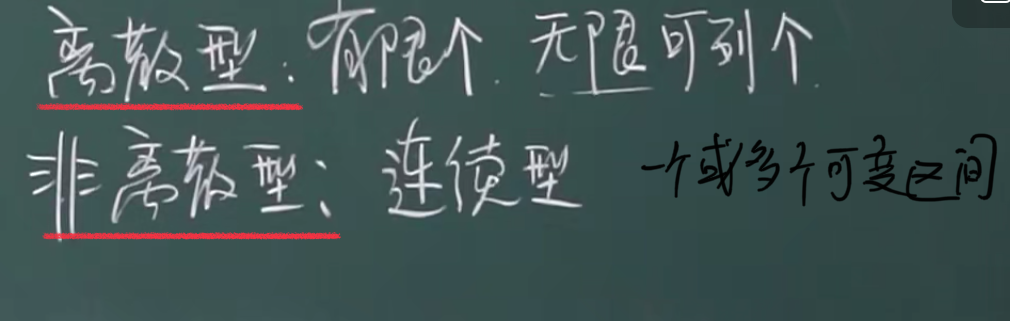 离散型:有限个.无限可列个.
非离散型:连续型 一个或多个可变区间